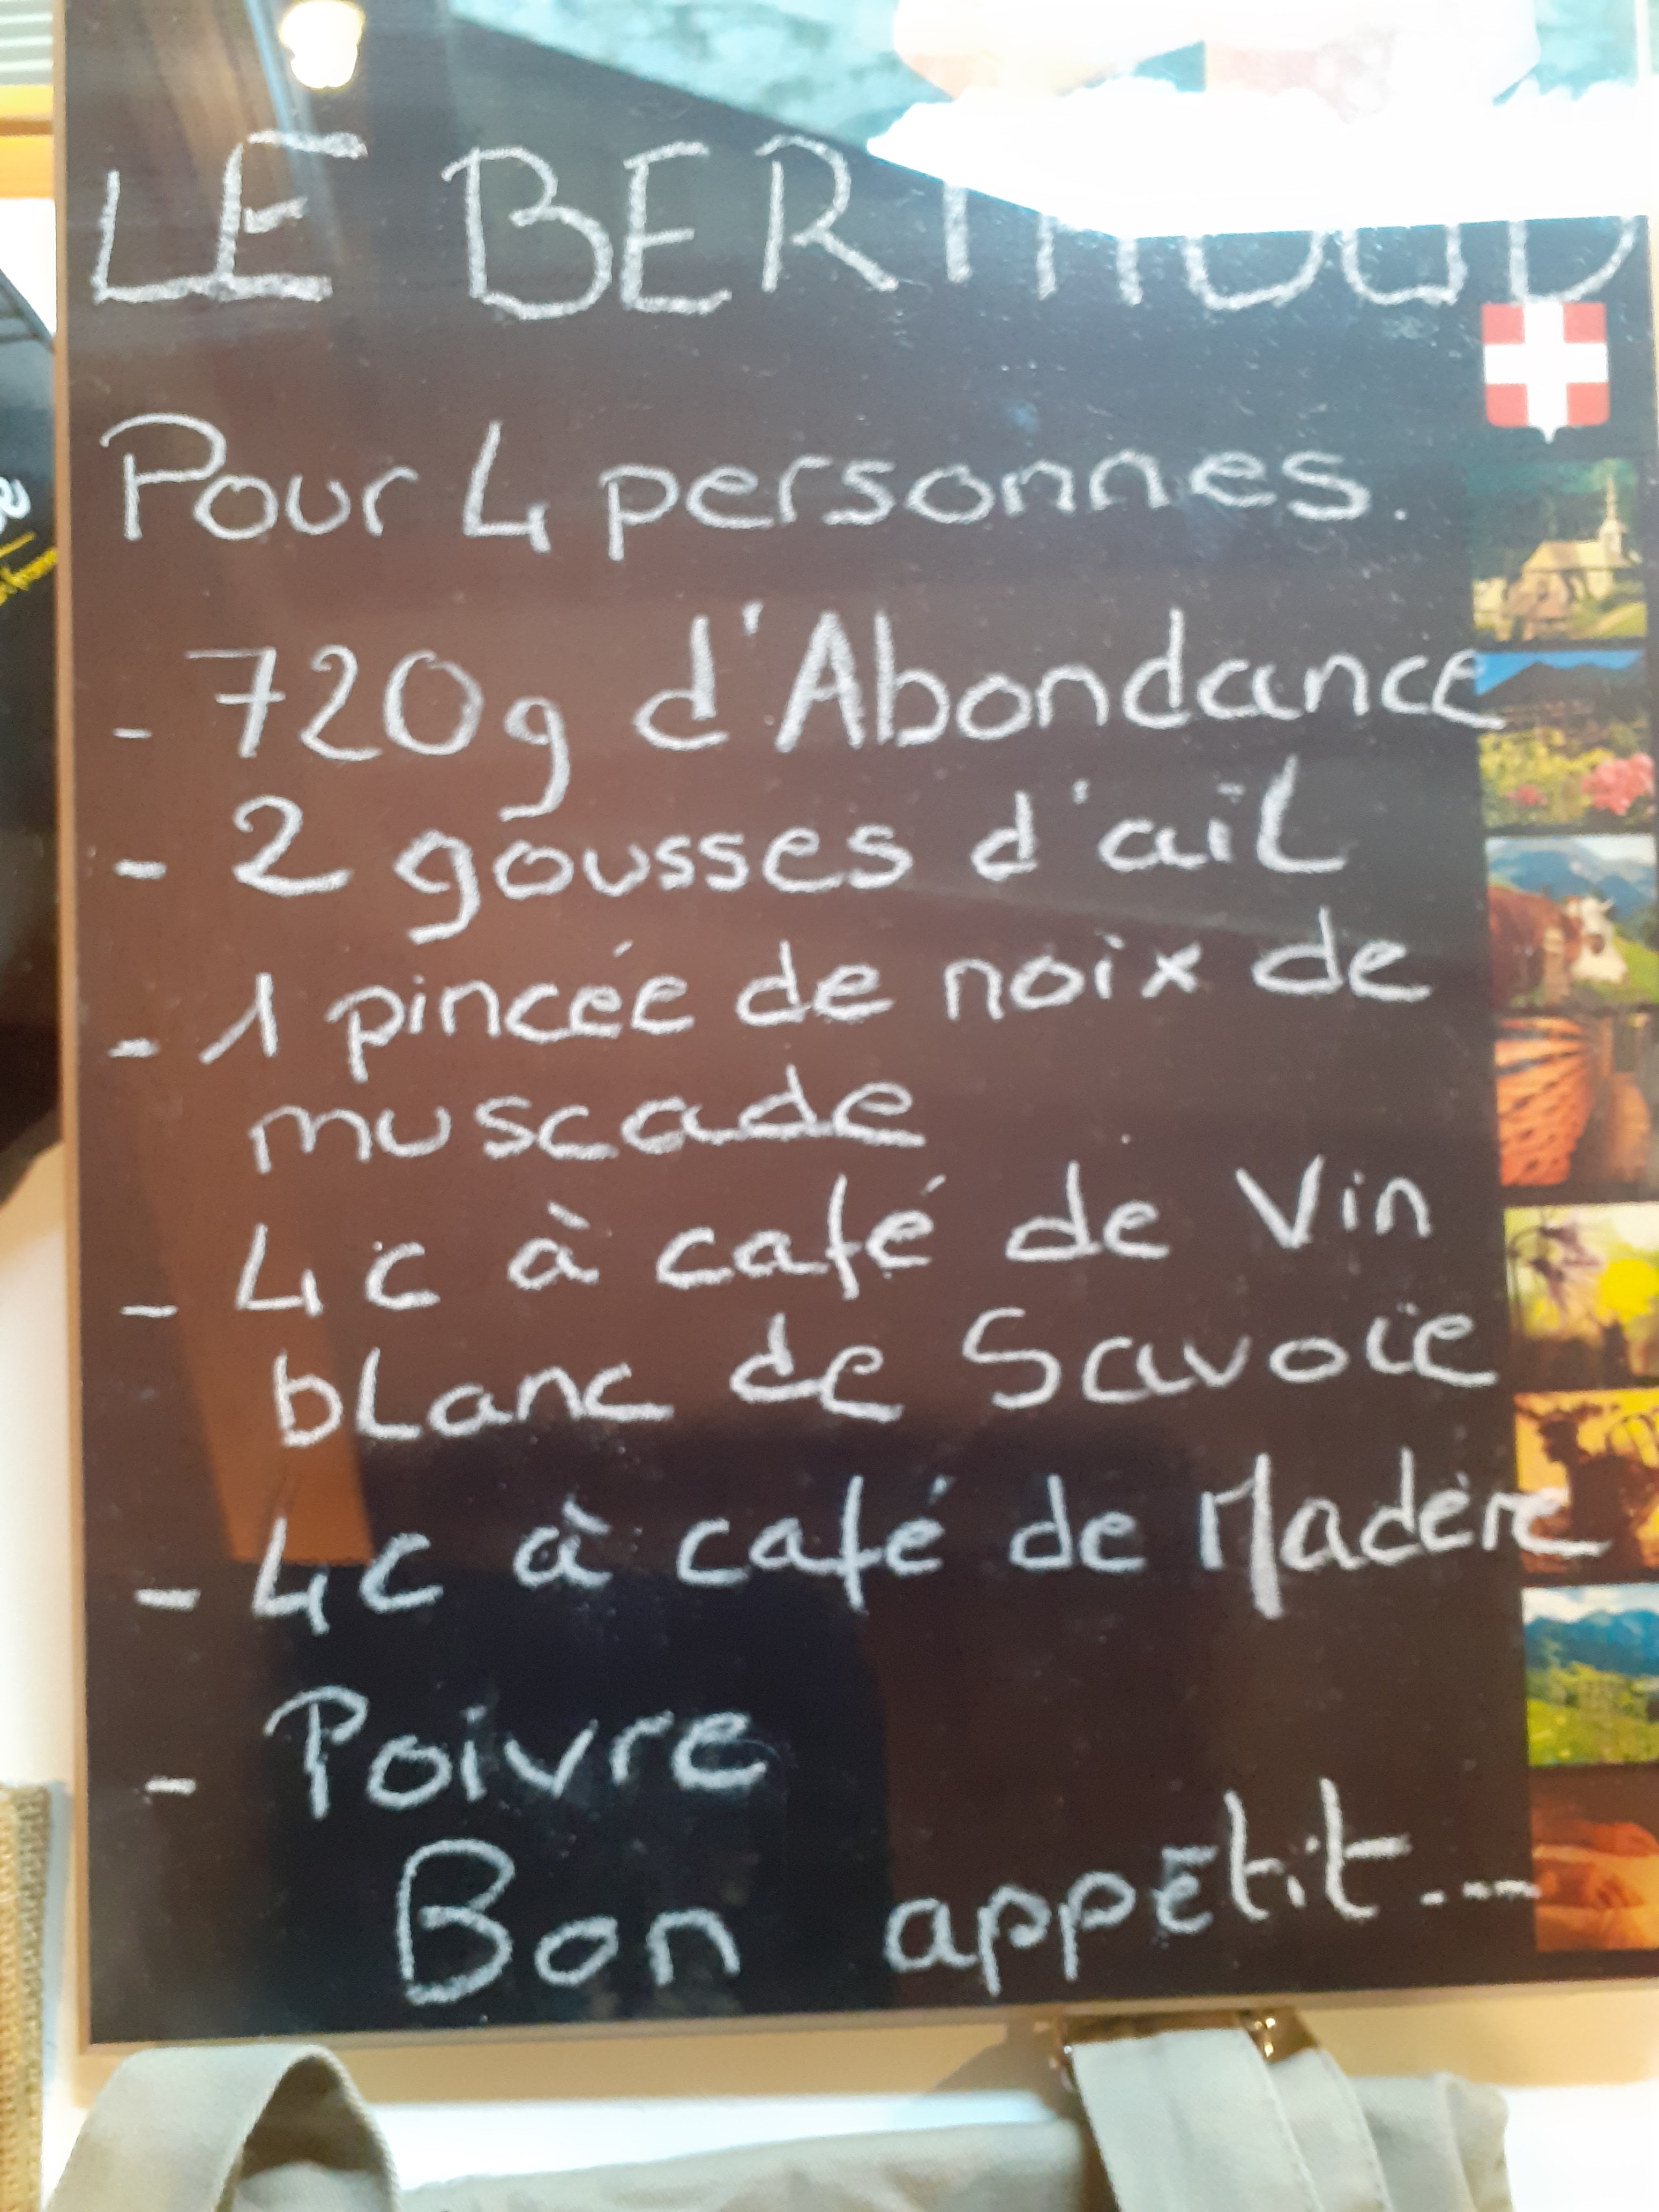 LE BERTHOUD
Pour 4 personnes.
- 720g d'Abondance
- 2 gousses d'ail
- 1 pincée de noix de
muscade
- 4c à café de Vin
blanc de Savoie
- 4c à café de Madère
- Poivre
Bon appétit....